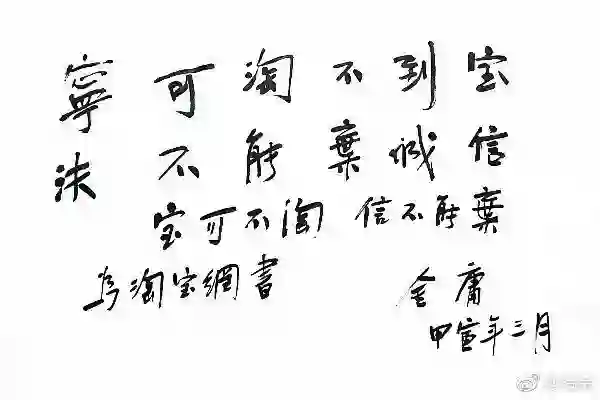 寧可淘不到宝
决不能棄诚信
宝可不淘 信不能棄
為淘宝網書 金庸
甲寅年三月